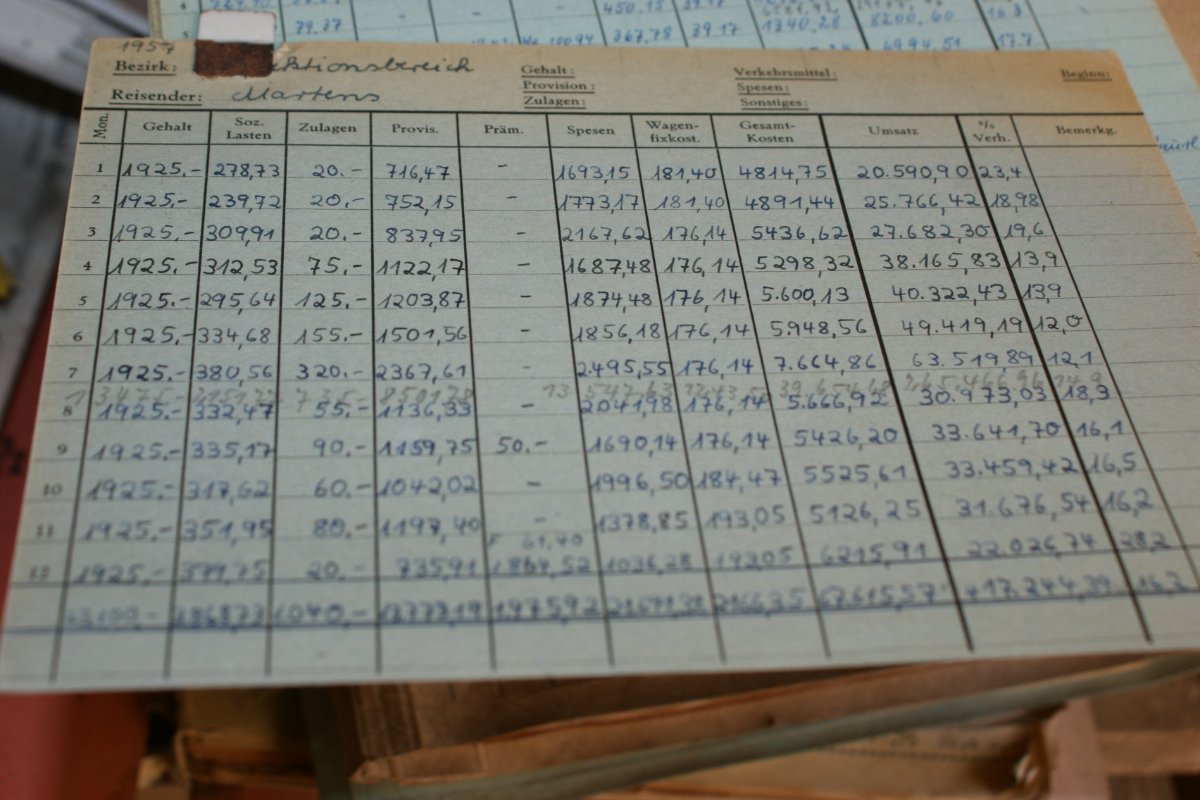 450.15
79.37 - - - 1340,28 8200,60 16.3
10094 367,78 39.17 6994,51 17.7
1957
Bezirk: ktionsbereich Gehalt: Verkehrsmittel: Beginn:
Provision: Spesen:
Reisender: Martens Zulagen: Sonstiges:
Mon. Gehalt Soz. Lasten Zulagen Provis. Präm. Spesen Wagen-fixkost. Gesamt-Kosten Umsatz % Verh. Bemerkg.
1 1925.- 278,73 20.- 716,47 - 1693,15 181,40 4814,75 20.590,90 23,4
2 1925,- 239,72 20,- 752,15 - 1773,17 181,40 4891,44 25.766,42 18,98
3 1925.- 309,91 20.- 837,95 - 2167,62 176,14 5436,62 27.682,30 19,6
4 1925.- 312,53 75.- 1122,17 - 1687,48 176,14 5298,32 38.165,83 13,9
5 1925.- 295,64 125.- 1203,87 - 1874,48 176,14 5.600,13 40.322,43 13,9
6 1925.- 334,68 155.- 1501,56 - 1856,18 176,14 5948,56 49.419,19 12,0
7 1925.- 380,56 320.- 2367,61 - 2.495,55 176,14 7.664,86 63.519,89 12,1
8 1925.- 332,47 55.- 1136,33 - 2041,98 176,14 5.666,92 30.973,03 18,3
9 1925.- 335,17 90.- 1159,75 50.- 1690,14 176,14 5426,20 33.641,70 16,1
10 1925.- 317,62 60.- 1042,02 - 1996,50 184,47 5525,61 33.459,42 16,5
11 1925.- 351,95 80.- 1197,40 - 1378,85 193,05 5126,25 31.676,54 16,2
61,40
12 1925.- 379,75 20.- 735,91 1036,28 193,05 6215,91 22.026,74 28,2
1040.- 2166,35 417.244,39